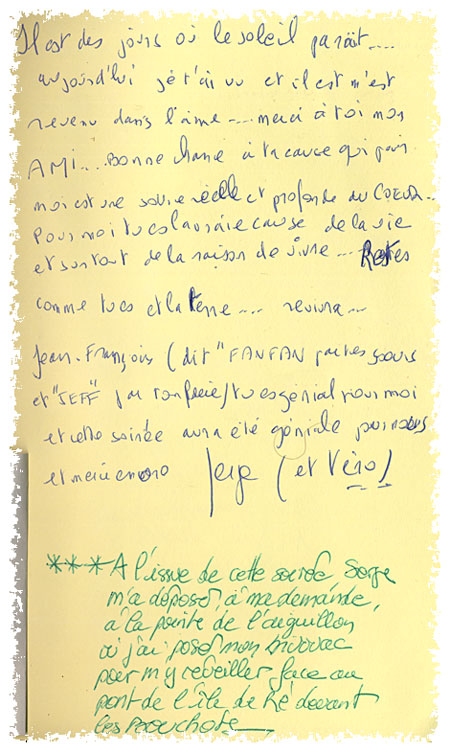 Il est des jours où le soleil paraît....
aujourd'hui je t'ai vu et il est m'est
revenu dans l'âme.... merci à toi mon
AMI.... Bonne chance à ta cause qui pour
moi est une source réelle et profonde du COEUR..
Pour moi tu es la vraie cause de la vie
et surtout de la raison de vivre... Restes
comme tu es et la terre.... revivra...
Jean-François (dit "FANFAN" par tes soeurs
et "JEFF" par ton frère) tu es génial pour moi
et cette soirée aura été géniale pour nous
et merci encore Serge (et Véro)
*** A l'issue de cette soirée, Serge
m'a déposé, à ma demande,
à la pointe de l'aiguillon
où j'ai posé mon bivouac
pour m'y réveiller face au
pont de l'île de Ré devant
les bouchots